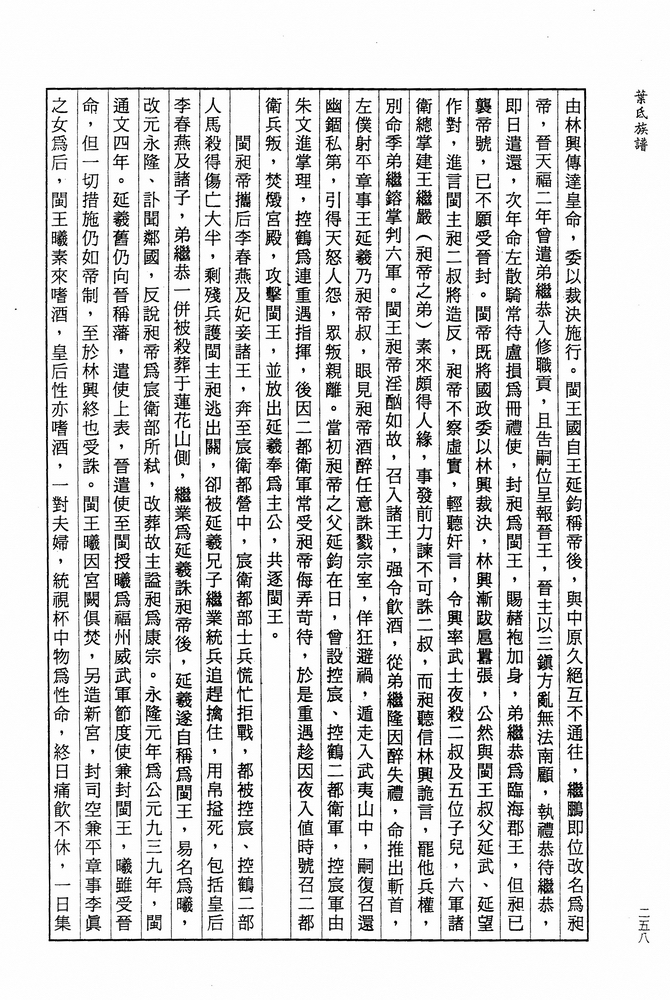 葉氏族譜
二五八
由林興傳達皇命，委以裁決施行。閩王國自王延鈞稱帝後，與中原久絕互不通往，繼鵬即位改名為昶
帝，晉天福二年曾遣弟繼恭入修職貢，且告嗣位呈報晉王，晉主以三鎮方亂無法南顧，執禮恭待繼恭，
即日遣還，次年命左散騎常待盧損爲冊禮使，封昶爲閩王，賜赭袍加身，弟繼恭爲臨海郡王，但昶已
襲帝號，已不願受晉封。閩帝既將國政委以林興裁決，林興漸跋扈囂張，公然與閩王叔父延武、延望
作對，進言閩主昶二叔將造反，昶帝不察虛實，輕聽奸言，令興率武士夜殺二叔及五位子兒，六軍諸
衛總掌建王繼嚴（昶帝之弟）素來頗得人緣，事發前力諫不可誅二叔，而昶聽信林興詭言，罷他兵權，
別命季弟繼鎔掌判六軍。閩王昶帝淫酗如故，召入諸王，强令飲酒，從弟繼隆因醉失禮，命推出斬首，
左僕射平章事王延羲乃昶帝叔，眼見昶帝酒醉任意誅戮宗室，佯狂避禍，遁走入武夷山中，嗣復召還
幽錮私第，引得天怒人怨，眾叛親離。當初昶帝之父延鈞在日，曾設控宸、控鶴二都衛軍，控宸軍由
朱文進掌理，控鶴爲連重遇指揮，後因二都衛軍常受昶帝侮弄苛待，於是重遇趁因夜入值時號召二都
衛兵叛，焚燬宮殿，攻擊閩王，並放出延羲奉爲主公，共逐閩王。
閩昶帝攜后李春燕及妃妾諸王，奔至宸衛都營中，宸衛都部士兵慌忙拒戰，都被控宸、控鶴二部
人馬殺得傷亡大半，剩殘兵護閩主昶逃出關，卻被延羲兄子繼業統兵追趕擒住，用帛搤死，包括皇后
李春燕及諸子，弟繼恭一併被殺葬于蓮花山側，繼業爲延羲誅昶帝後，延羲遂自稱爲閩王，易名爲曦，
改元永隆、訃聞鄰國，反說昶帝爲宸衛部所弒，改葬故主謚昶爲康宗。永隆元年爲公元九三九年，閩
通文四年。延羲舊仍向晉稱藩，遣使上表，晉遣使至閩授曦爲福州威武軍節度使兼封閩王，曦雖受晉
命，但一切措施仍如帝制，至於林興終也受誅。閩王曦因宮闕俱焚，另造新宮，封司空兼平章事李眞
之女爲后，閩王曦素來嗜酒，皇后性亦嗜酒，一對夫婦，統視杯中物爲性命，終日痛飲不休，一日集